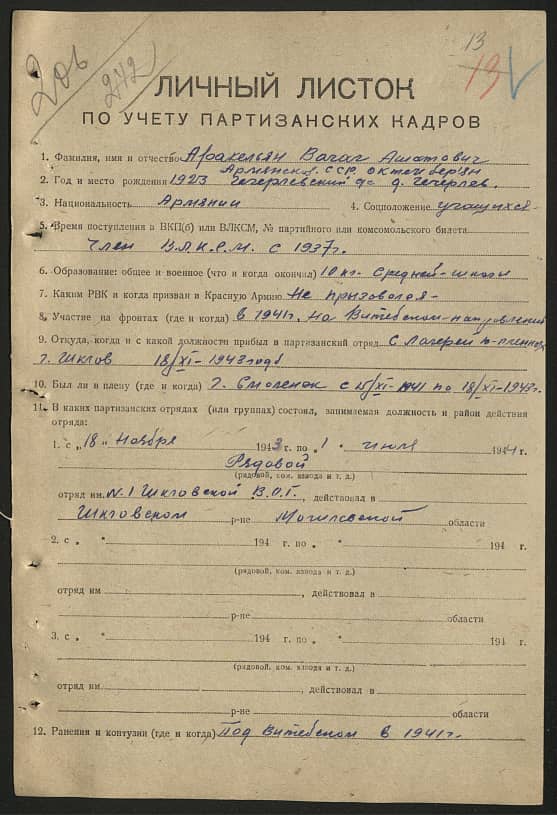 206
242
13
13
ЛИЧНЫЙ ЛИСТОК
ПО УЧЕТУ ПАРТИЗАНСКИХ КАДРОВ
1. Фамилия, имя и отчество Аракельян Вагаг Ашотович
Армянск. ССР. Октемберян
2. Год и место рождения 1923 Гечерлевский д. Гечерлев.
3. Национальность Армянин 4. Соцположение учащихся
5. Время поступления в ВКП(б) или ВЛКСМ, № партийного или комсомольского билета
Член В.Л.К.С.М. с 1937г.
6. Образование: общее и военное (что и когда окончил) 10 кл. средней-школы
7. Каким РВК и когда призван в Красную Армию Не призовался-
8. Участие на фронтах (где и когда) в 1941г. на Витебском-направлении
9. Откуда, когда и с какой должности прибыл в партизанский отряд с Лагерей в-пленных
г. Шклов 18/XI-1943 года
10. Был ли в плену (где и когда) г. Смоленск с 15/XI-1941 по 18/XI-1943г.
11. В каких партизанских отрядах (или группах) состоял, занимаемая должность и район действия
отряда:
1. с „18„ Ноября 1943 г. по „1" июля 1944 г.
Рядовой
(рядовой, ком. взвода и т. д.)
отряд им. N.1 Шкловской В.О.Г., действовал в
Шкловском р-не Могилевской области
2. с „ " 194 г. по „ " 194 г.
(рядовой, ком. взвода и т. д.)
отряд им , действовал в
р-не области
3. с „ " 194 г. по „ " 194 г.
(рядовой, ком. взвода и т. д.)
отряд им. , действовал в
р-не области
12. Ранения и контузии (где и когда) Под Витебском в 1941г.